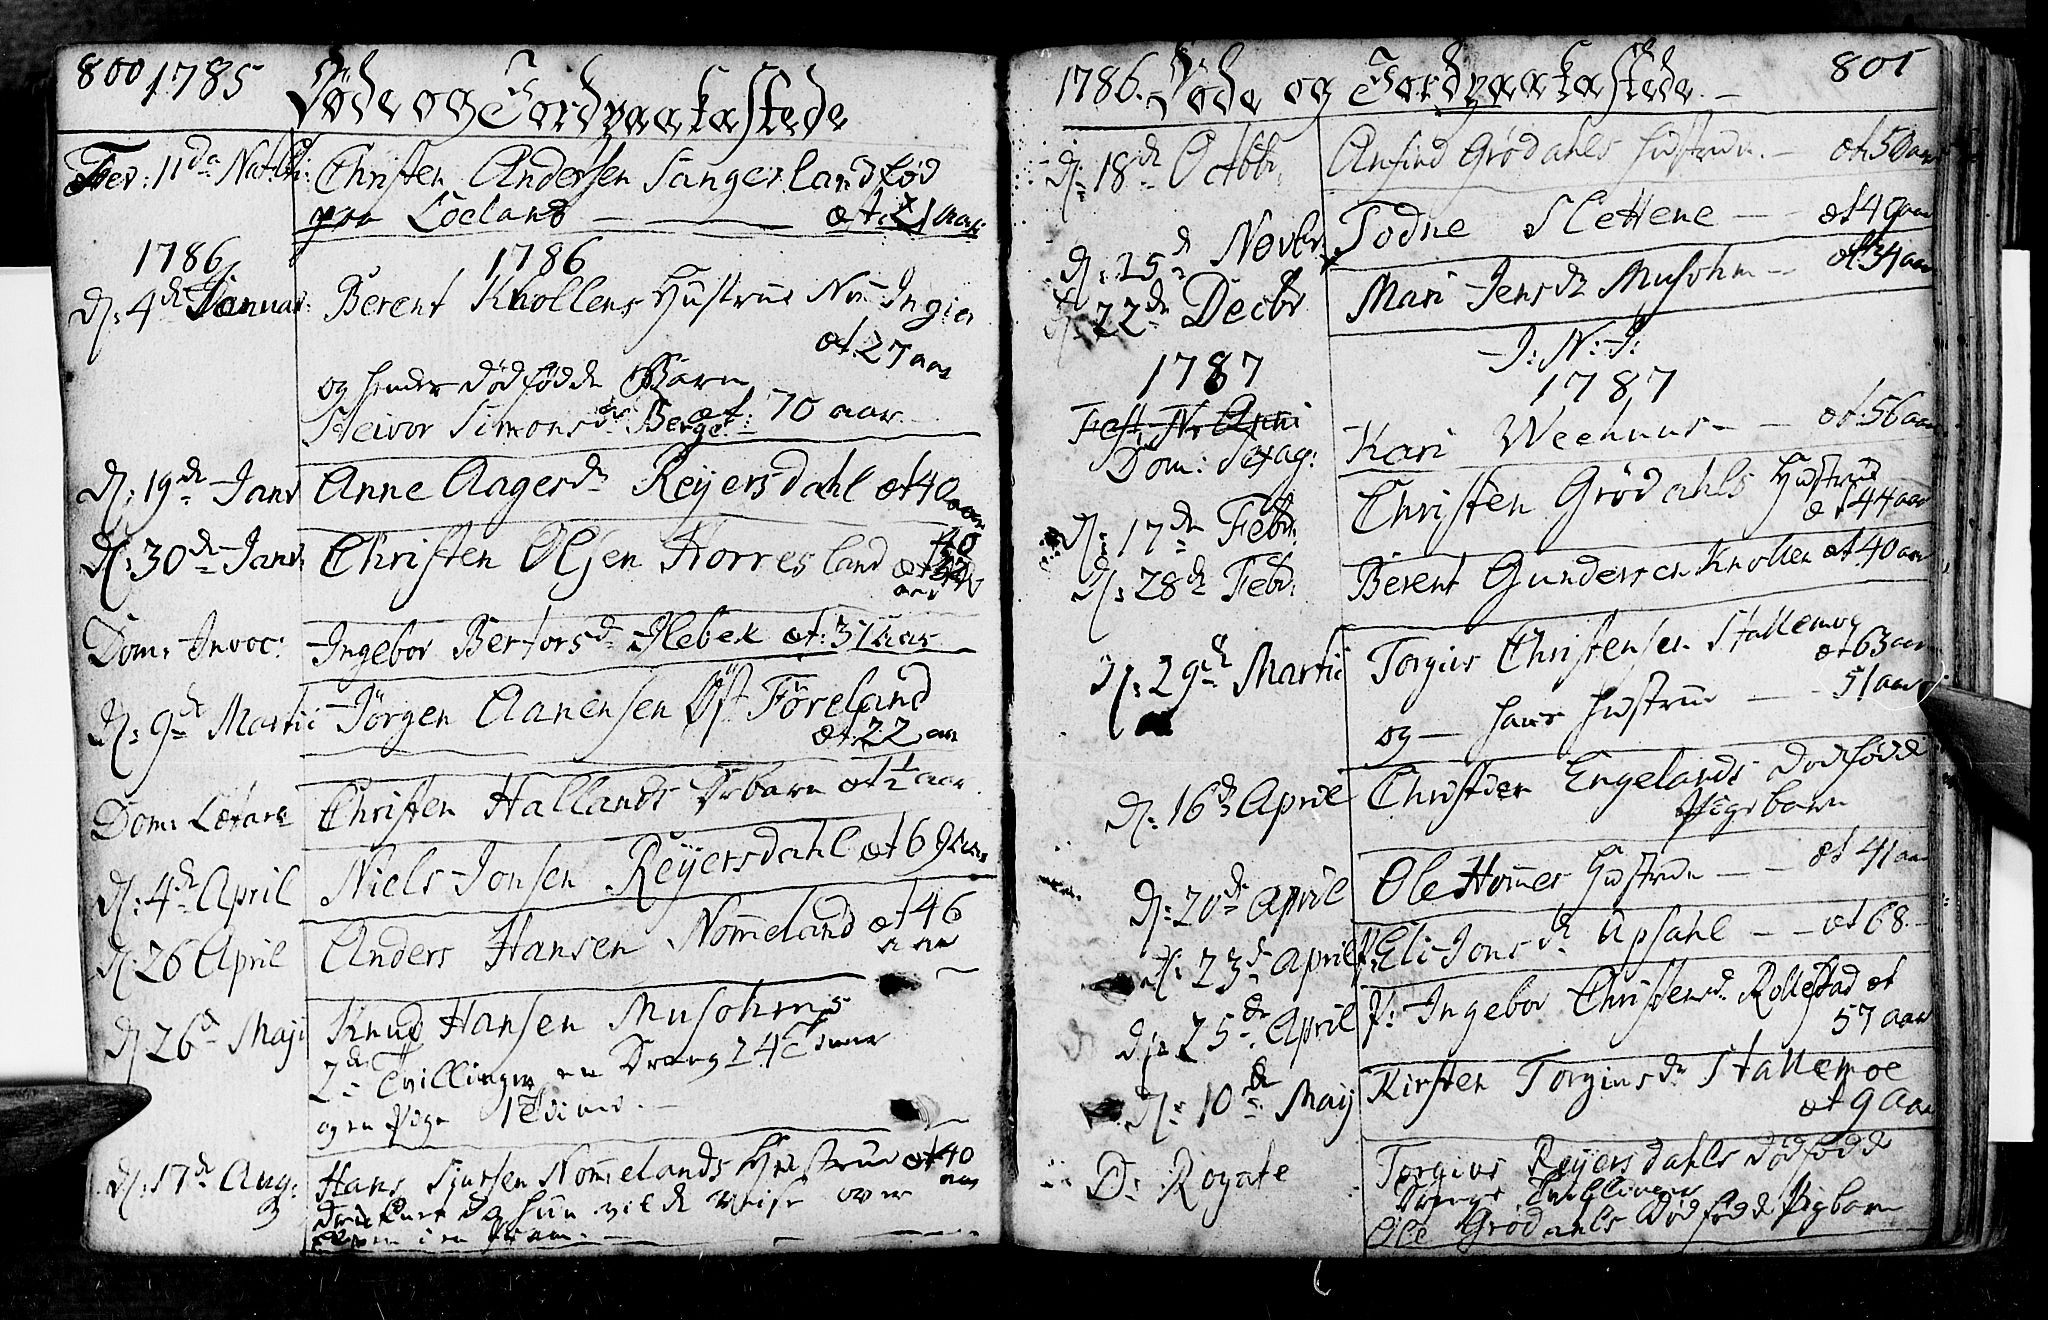 800 1785 Døde og Jordpaakastede
Fer: 11da Nativi: Christen Andersen Sangesland fød
paa Loeland — æt: 21 aar
1786 1786
D: 4de Januar: Berent Knollens Hustrue Nom Inger
æt. 27 aar
og hendes dødfødde Barn
Steivor Simonsdr Berge æt: 70 aar
D: 19de Janr Anne Aagesdr Reÿersdahl æt 40 aar
D: 30de Janr: Christen Olsen Horresland æt
aar
Dom: Invoc: Ingebor Bertorsd: Ilebek æt: 31 aar
D: 9de Martii Jörgen Aanensen Øst Föreland
æt. 22 aar
Dom: Lætare Christen Hallands Drbarn æt 1/2 aar
D: 4de April Niels Jonsen Reÿersdahl æt 69 aar
D: 26 April Anders Hansen Nomeland æt 46
aar
D 26d Maji Knud Hansen Musohms
2de Tvillinger en Dreng 24 Timer
og en Pige 12 Timer. —
D: 17de Aug: Hans Sjursen Nomelands Hustrue æt 40
aar
druknet da hun vilde reise over
i en Pram. —
1786. Døde og Jordpaakastede. — 801
D: 18de Octbr Anfind Grødahls Hustrue. — æt. 50 aar
D: 25de Novbr: Todne Slettene — — æt 49 aar
D: 22de Decbr Mari Jensdr Musohm — æt. 34 aar
I: N: J:
1787 1787
Dom: Sexag: Kari Weehuus — — æt. 56 aar
D: 17de Febr: Christen Grödahls Hustrue
æt 44 aar
D: 28de Febr: Berent Gundersen Knollen æt. 40 aar
D: 29de Martii Torgius Christensen Stallemog
æt 63 aar
og — hans Hustrue — — 51 aar
D: 16de April Christen Engelands dødfødde
Pigebarn
D: 20de April Ole Homes Hustrue — — æt 41 aar
D: 23de April P: Eli Jonsdr Upsahl — — æt 68. —
D: 25de April P: Ingebor Christensd: Rollestad æt
57 aar
D: 10de Maij Kirsten Torgiusdr Stallemoe
æt 9 aar
D: Rogate Torgius Reÿersdahls dødfødde
Drenge Tvillinger
Ole Grödahls Dødfødde Pigbarn